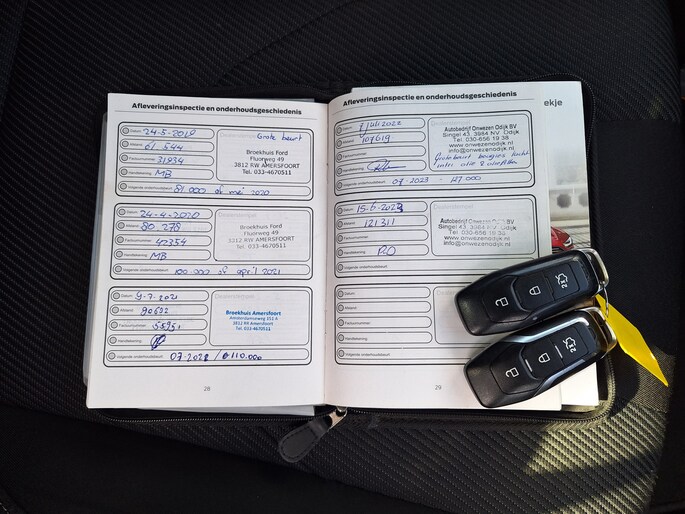 Afleveringsinspectie en onderhoudsgeschiedenis
Datum 24-5-2019
Afstand 61.544
Factuurnummer 31934
Handtekening MB
Volgende onderhoudsbeurt 81.000 of mei 2020
Grote beurt
Broekhuis Ford
Fluorweg 49
3812 RW AMERSFOORT
Tel. 033-4670511
Datum 24-4-2020
Afstand 80.278
Factuurnummer 42354
Handtekening MB
Volgende onderhoudsbeurt 100.000 of april 2021
Broekhuis Ford
Fluorweg 49
3812 RW AMERSFOORT
Tel. 033-4670511
Datum 9-7-2021
Afstand 90602
Factuurnummer
Handtekening
Volgende onderhoudsbeurt 07-2022 / 110.000
Broekhuis Amersfoort
3812 RR Amersfoort
Tel. 033-4670511
28
Afleveringsinspectie en onderhoudsgeschiedenis
Datum 1 juli 2022
Afstand 107619
Factuurnummer
Handtekening
Volgende onderhoudsbeurt 07-2023 - 127.000
Autobedrijf Onwezen Odijk BV
Singel 43, 3984 NV Odijk
Tel. 030-656 19 38
www.onwezenodijk.nl
info@onwezenodijk.nl
Grote beurt bougies lucht
inter olie & oliefilter
Datum 15-6-2023
Afstand 121311
Factuurnummer
Handtekening
Volgende onderhoudsbeurt
Autobedrijf Onwezen Odijk BV
Singel 43, 3984 NV Odijk
Tel. 030-656 19 38
www.onwezenodijk.nl
info@onwezenodijk.nl
Datum
Afstand
Factuurnummer
Handtekening
Volgende onderhoudsbeurt
29
ekje